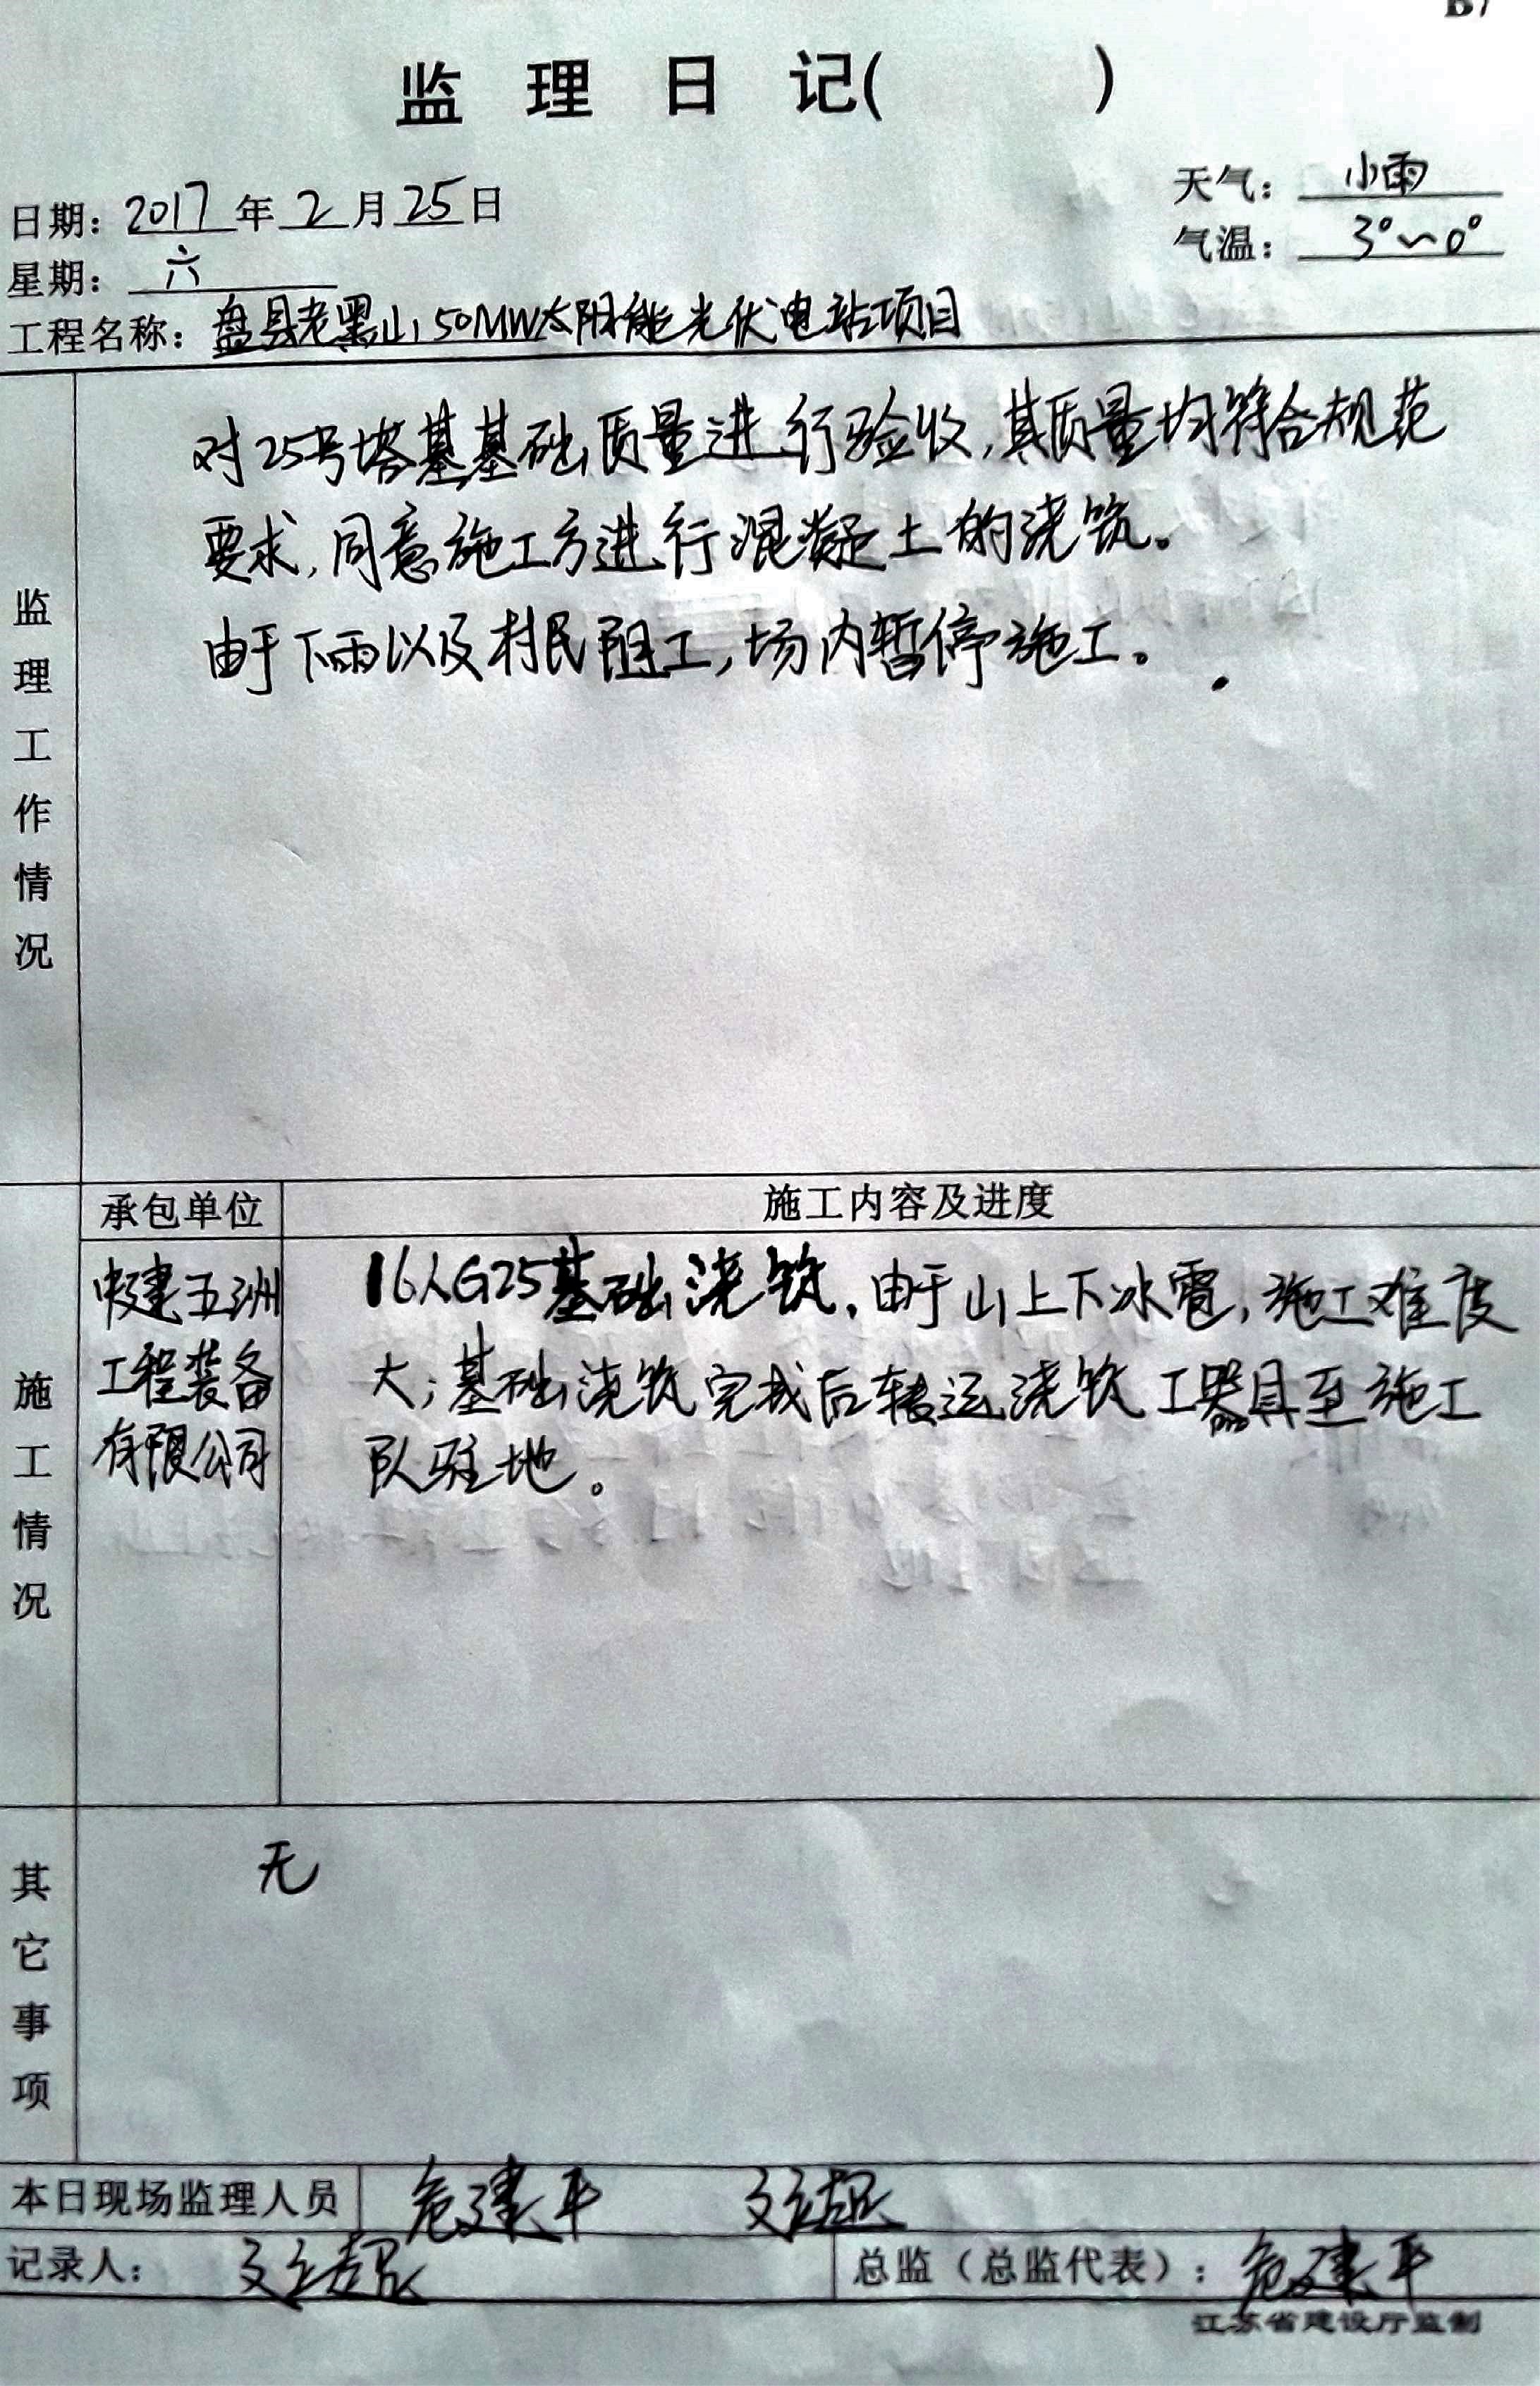 监理日记( )
日期: 2017年2月25日
天气: 小雨
星期: 六
气温: 3°~0°
工程名称: 盘县老黑山50MW太阳能光伏电站项目
监理工作情况
对25号塔基基础质量进行验收,其质量均符合规范
要求,同意施工方进行混凝土的浇筑。
由于下雨以及村民阻工,场内暂停施工。
施工情况
承包单位
施工内容及进度
建五洲
工程装备
有限公司
16人G25基础浇筑,由于山上下冰雹,施工难度
大;基础浇筑完成后转运浇筑工器具至施工
队驻地。
其它事项
无
本日现场监理人员 危建平 文超
记录人: 文超
总监(总监代表): 危建平
江苏省建设厅监制